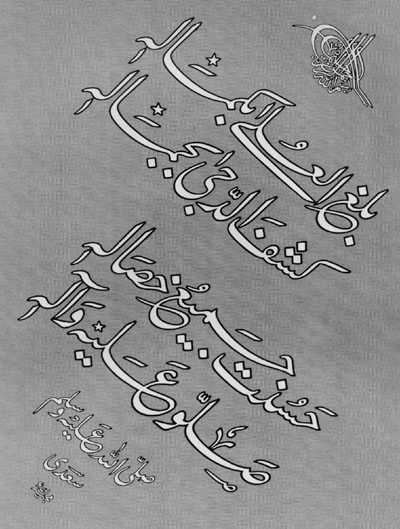 بلغ العلی بکماله
کشف الدجی بجماله
حسنت جمیع خصاله
صلوا علیه وآله
صلی الله علیه وسلم
سعدی